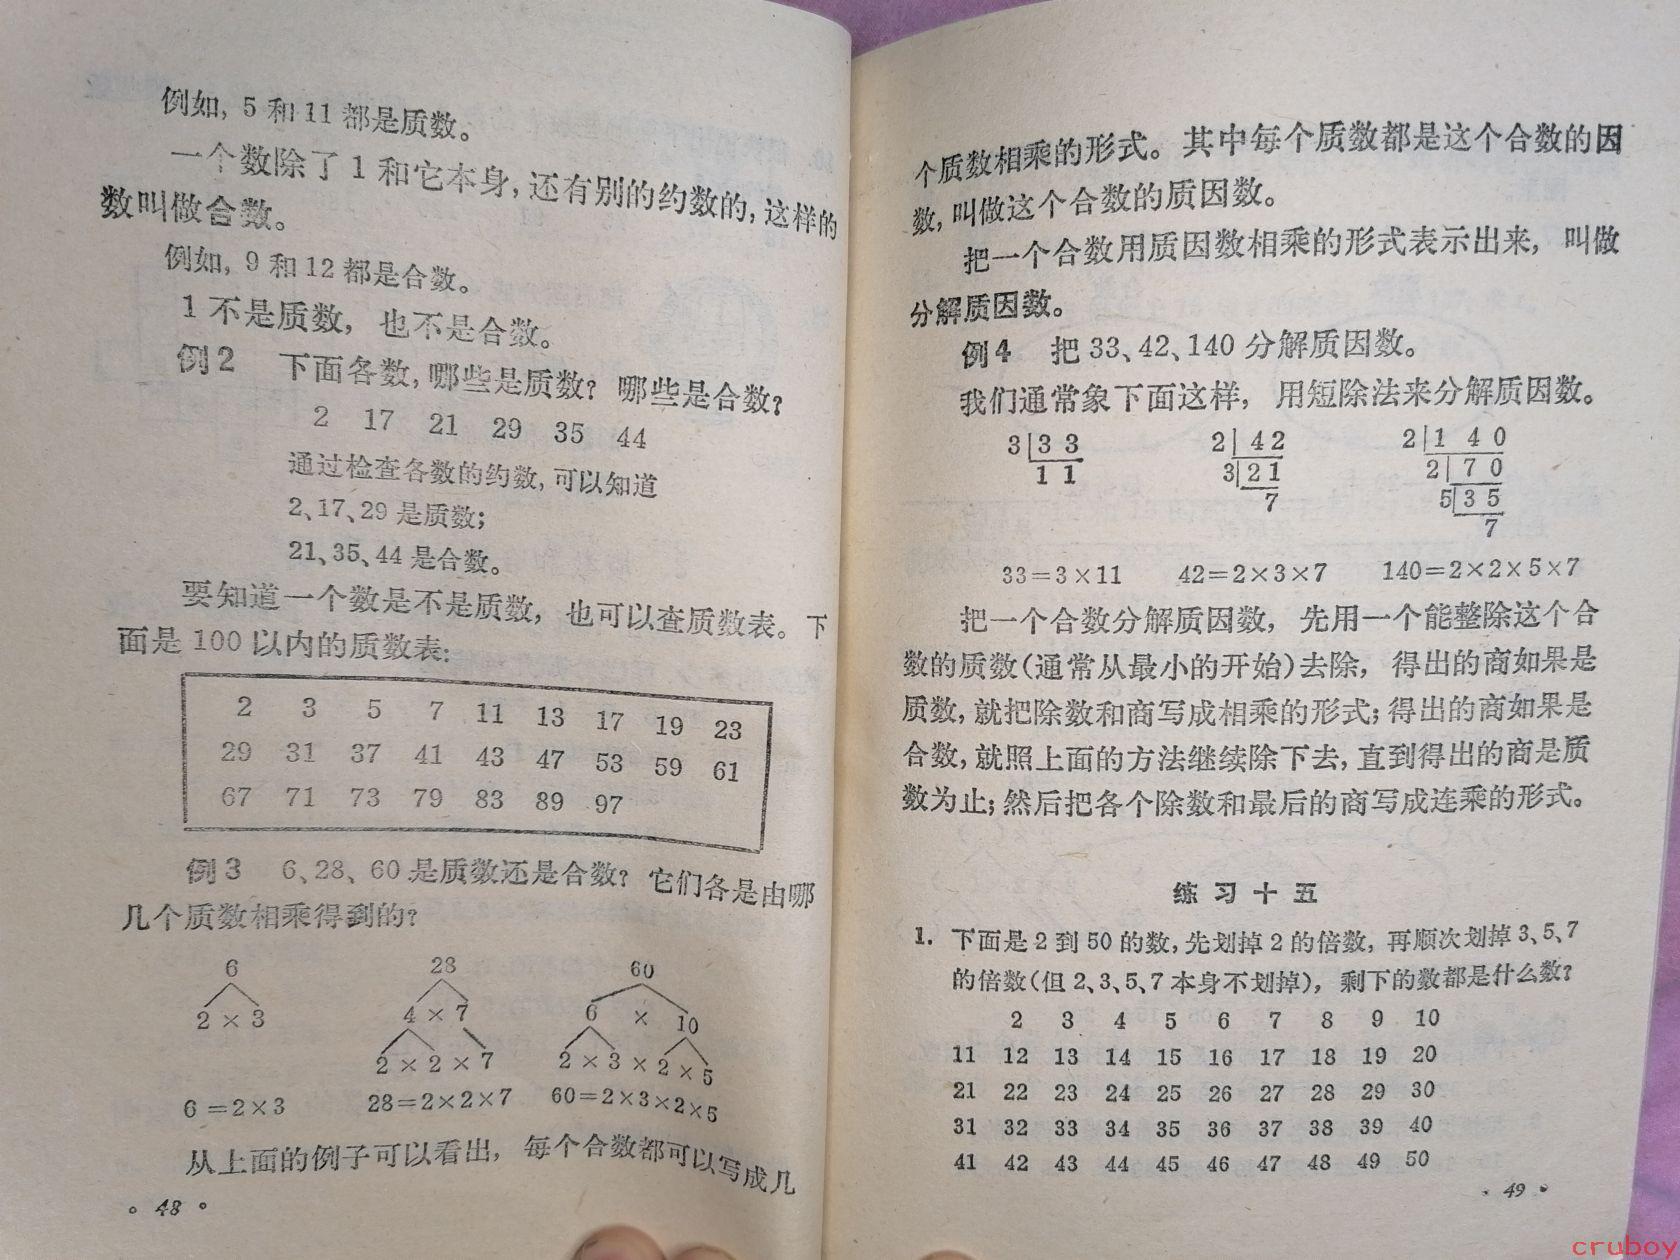 例如, 5 和 11 都是质数。
一个数除了 1 和它本身, 还有别的约数的, 这样的
数叫做合数。
例如, 9 和 12 都是合数。
1 不是质数, 也不是合数。
例 2 下面各数, 哪些是质数? 哪些是合数?
2 17 21 29 35 44
通过检查各数的约数, 可以知道
2、17、29 是质数;
21、35、44 是合数。
要知道一个数是不是质数, 也可以查质数表。下
面是 100 以内的质数表:
2 3 5 7 11 13 17 19 23
29 31 37 41 43 47 53 59 61
67 71 73 79 83 89 97
例 3 6、28、60 是质数还是合数? 它们各是由哪
几个质数相乘得到的?
6 28 60
2 × 3 4 × 7 6 × 10
2 × 2 × 7 2 × 3 × 2 × 5
6=2×3 28=2×2×7 60=2×3×2×5
从上面的例子可以看出, 每个合数都可以写成几
· 48 ·
个质数相乘的形式。其中每个质数都是这个合数的因
数, 叫做这个合数的质因数。
把一个合数用质因数相乘的形式表示出来, 叫做
分解质因数。
例 4 把 33、42、140 分解质因数。
我们通常象下面这样, 用短除法来分解质因数。
3 33 2 42 2 140
11 3 21 2 70
7 5 35
7
33=3×11 42=2×3×7 140=2×2×5×7
把一个合数分解质因数, 先用一个能整除这个合
数的质数(通常从最小的开始)去除, 得出的商如果是
质数, 就把除数和商写成相乘的形式; 得出的商如果是
合数, 就照上面的方法继续除下去, 直到得出的商是质
数为止; 然后把各个除数和最后的商写成连乘的形式。
练习十五
1. 下面是 2 到 50 的数, 先划掉 2 的倍数, 再顺次划掉 3、5、7
的倍数(但 2、3、5、7 本身不划掉), 剩下的数都是什么数?
2 3 4 5 6 7 8 9 10
11 12 13 14 15 16 17 18 19 20
21 22 23 24 25 26 27 28 29 30
31 32 33 34 35 36 37 38 39 40
41 42 43 44 45 46 47 48 49 50
· 49 ·
cruboy